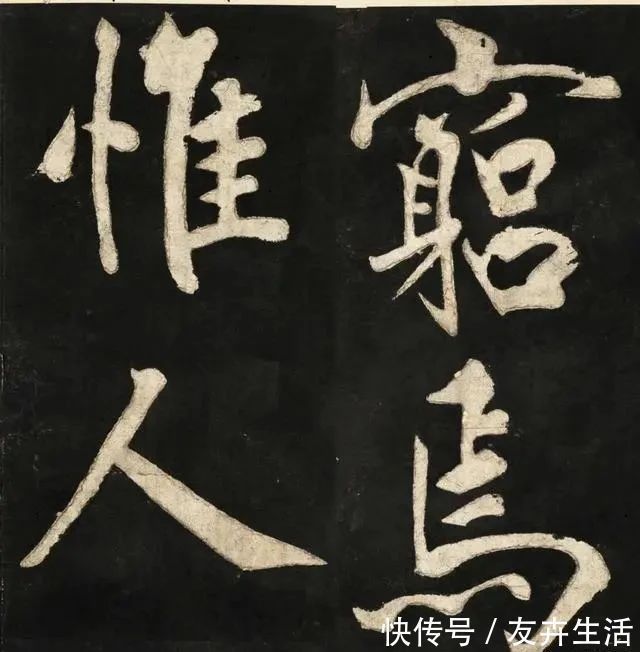 竆焉
惟人
快传号 / 友卉生活